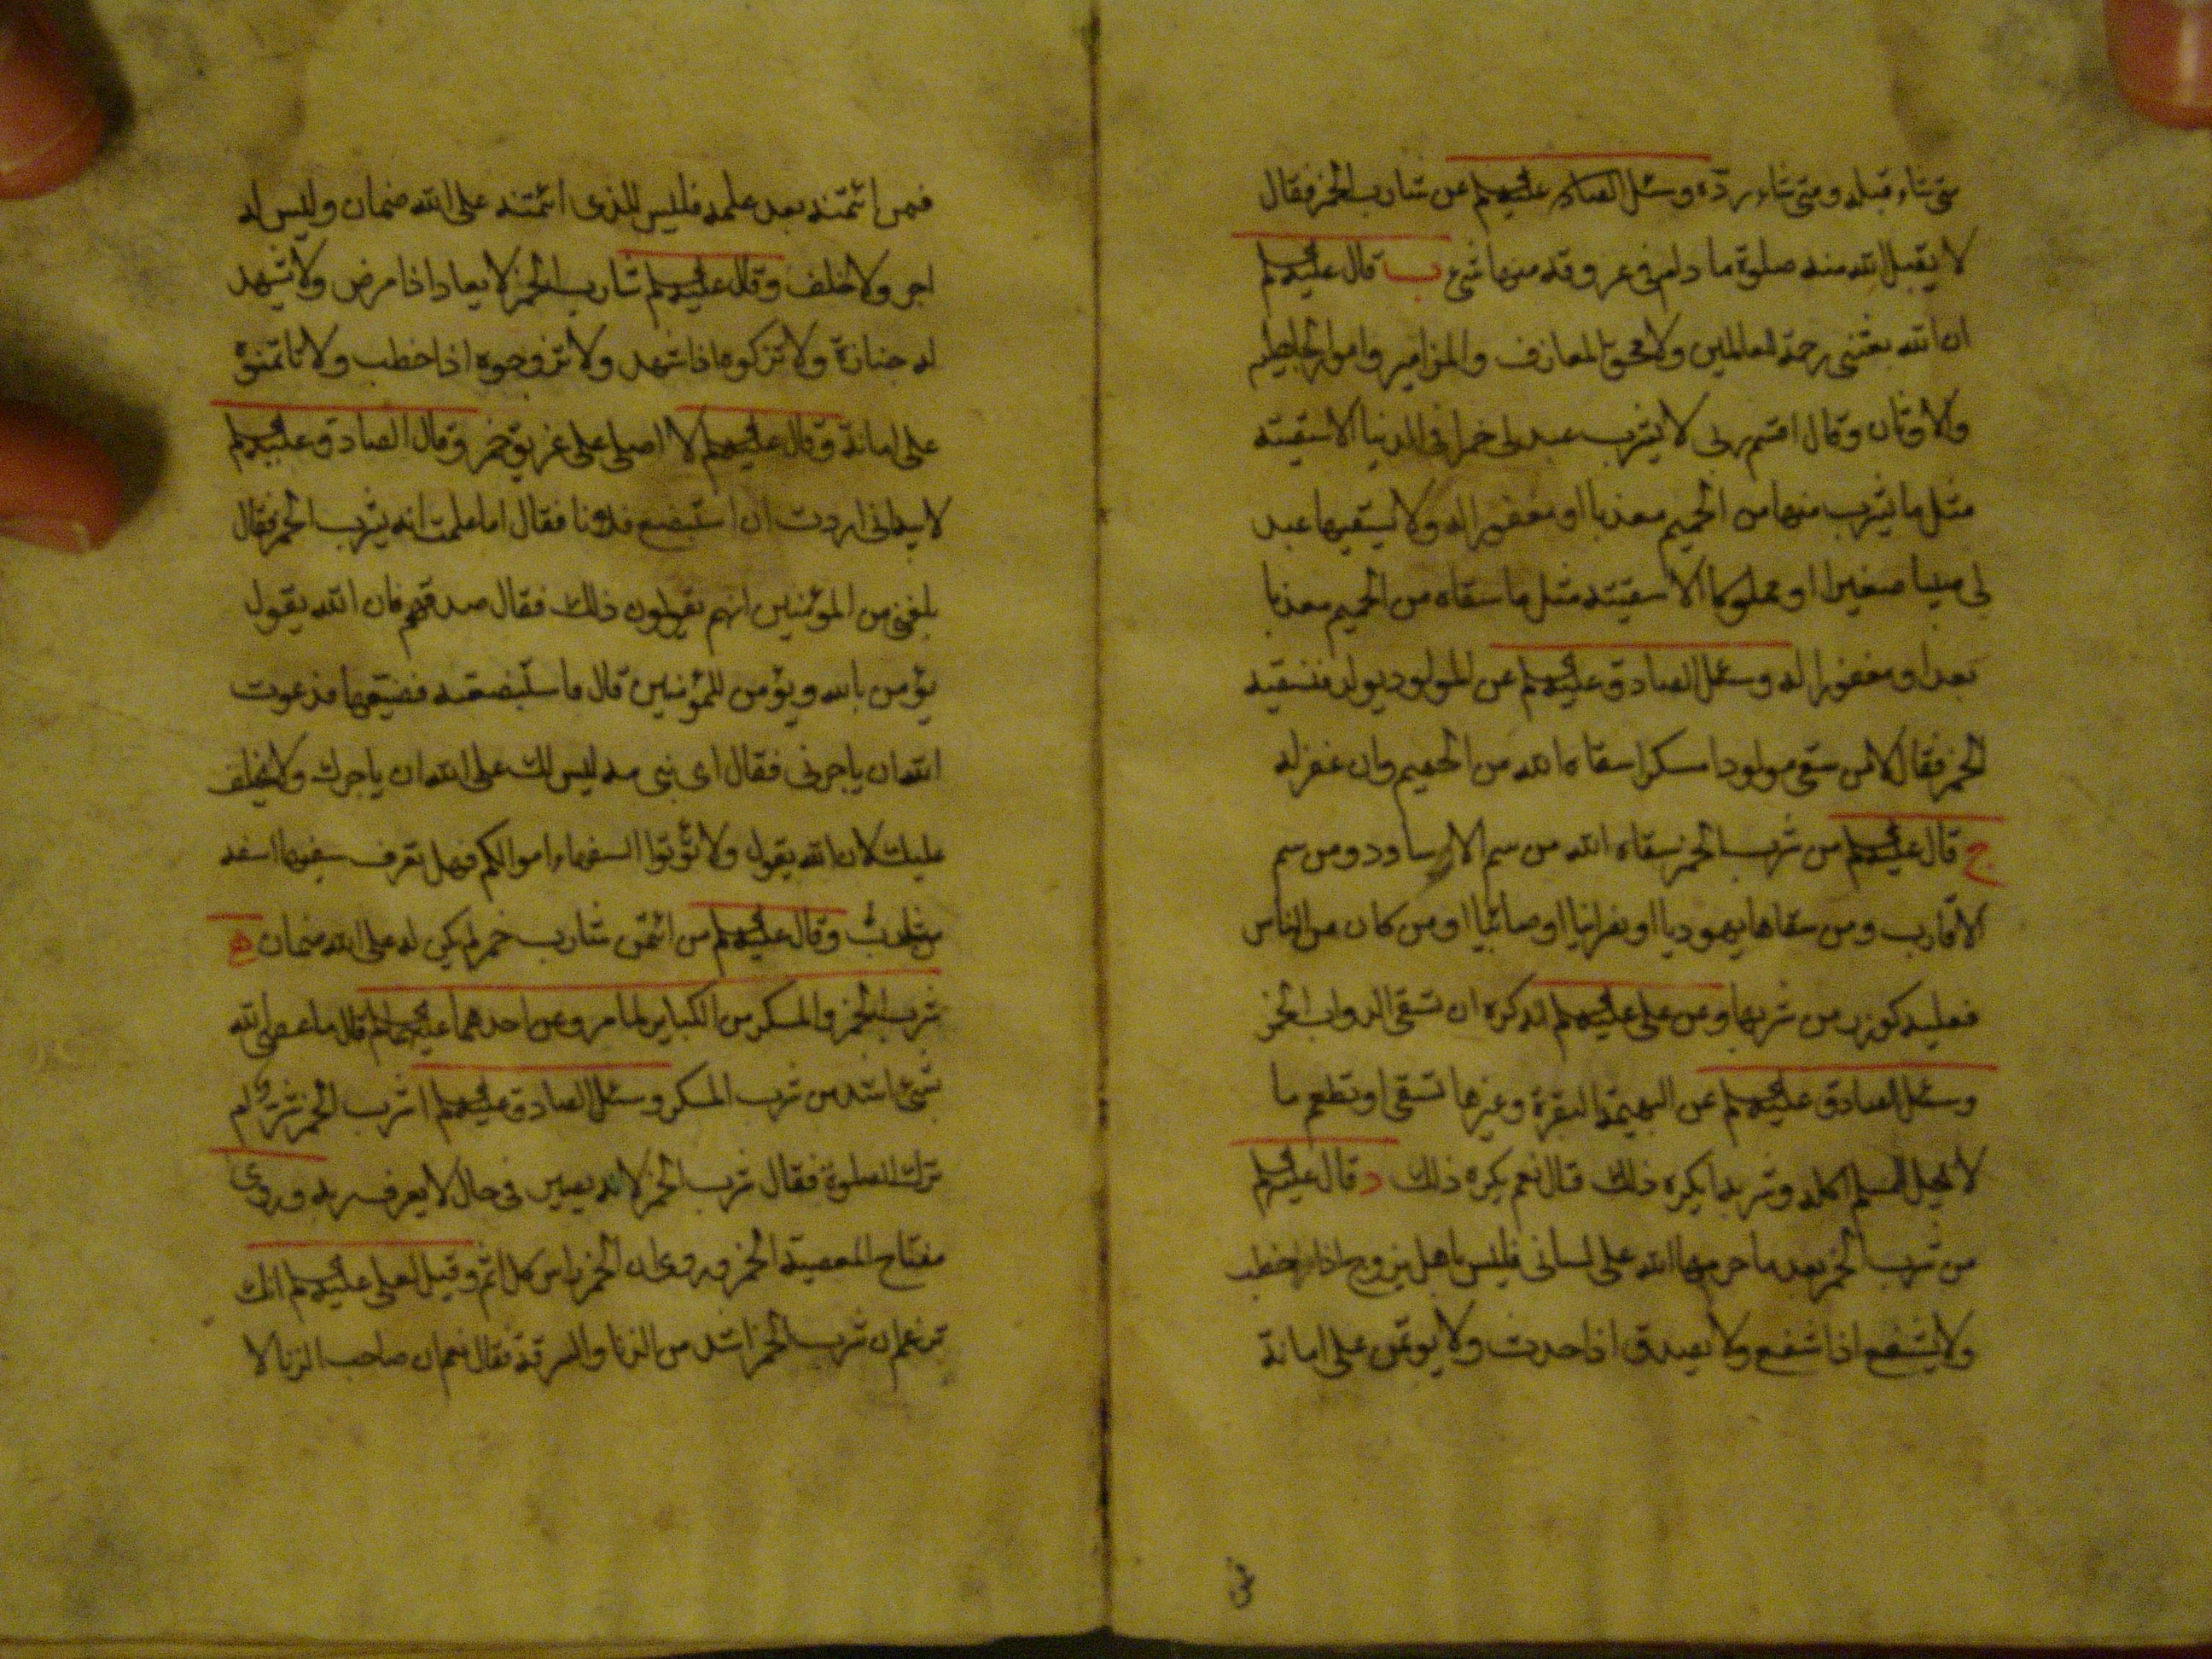 متى شاء قبله ومتى شاء ردّه وسئل الصادق عليه السلم عن شارب الخمر فقال
لا يقبل الله منه صلوة ما دام فى عروقه منها شئ ب قال عليه السلم
ان الله بعثنى رحمة للعالمين ولامحق المعازف والمزامير وامور الجاهلية
والاوثان وقال اقسم ربى لا يشرب عبد لى خمرا فى الدنيا الا سقيته
مثل ما يشرب منها من الحميم معذبا او مغفورا له ولا يسقيها عبد
لى صبيا صغيرا او مملوكا الا سقيته مثل ما سقاه من الحميم معذبا
بعد او مغفورا له وسئل الصادق عليه السلم عن المولود يولد فنسقيه
الخمر فقال لا من سقى مولودا مسكرا سقاه الله من الحميم وان غفر له
ج قال عليه السلم من شرب الخمر سقاه الله من سم الاساود ومن سم
العقارب ومن سقاها يهوديا او نصرانيا او صابئيا او من كان من الناس
فعليه كوزر من شربها وعن على عليه السلم انه كره ان تسقى الدواب الخمر
وسئل الصادق عليه السلم عن البهيمة البقرة وغيرها تسقى او تطعم ما
لا يحل للمسلم اكله وشربه ايكره ذلك قال نعم يكره ذلك د قال عليه السلم
من شرب الخمر بعد ما حرمها الله على لسانى فليس باهل يزوج اذا خطب
ولا يشفع اذا شفع ولا يصدق اذا حدث ولا يؤتمن على امانة
فمن ائتمنه بعد علمه فليس للذى ائتمنه على الله ضمان وليس له
اجر ولا خلف وقال عليه السلم شارب الخمر لا يعاد اذا مرض ولا تشهد
له جنازة ولا تزكوه اذا شهد ولا تزوجوه اذا خطب ولا تاتمنوه
على امانة وقال عليه السلم لا اصلى على غريق خمر وقال الصادق عليه السلم
لابيه انى اردت ان استبضع فلانا فقال اما علمت انه يشرب الخمر فقال
بلغنى من المؤمنين انهم يقولون ذلك فقال صدقهم فان الله يقول
يؤمن بالله ويؤمن للمؤمنين قال فاستبضعته فضيعها فدعوت
الله ان ياجرنى فقال اى بنى مه ليس لك على الله ان ياجرك ولا يخلف
عليك لان الله يقول ولا تؤتوا السفهاء اموالكم فهل تعرف سفيها اسفه
وقال عليه السلم من ائتمن شارب خمر لم يكن له على الله ضمان ه
شرب الخمر والمسكر من الكباير لما مر وعن احدهما عليهما السلم قال ما عصى الله
بشئ اشد من شرب المسكر وسئل الصادق عليه السلم اشرب الخمر شر ام
ترك الصلوة فقال شرب الخمر لانه يصير فى حال لا يعرف ربه وروى
مفتاح المعصية الخمر وروى ان الخمر راس كل اثم وقيل لعلى عليه السلم انك
تزعم ان شرب الخمر اشد من الزنا والسرقة فقال نعم ان صاحب الزنا لا